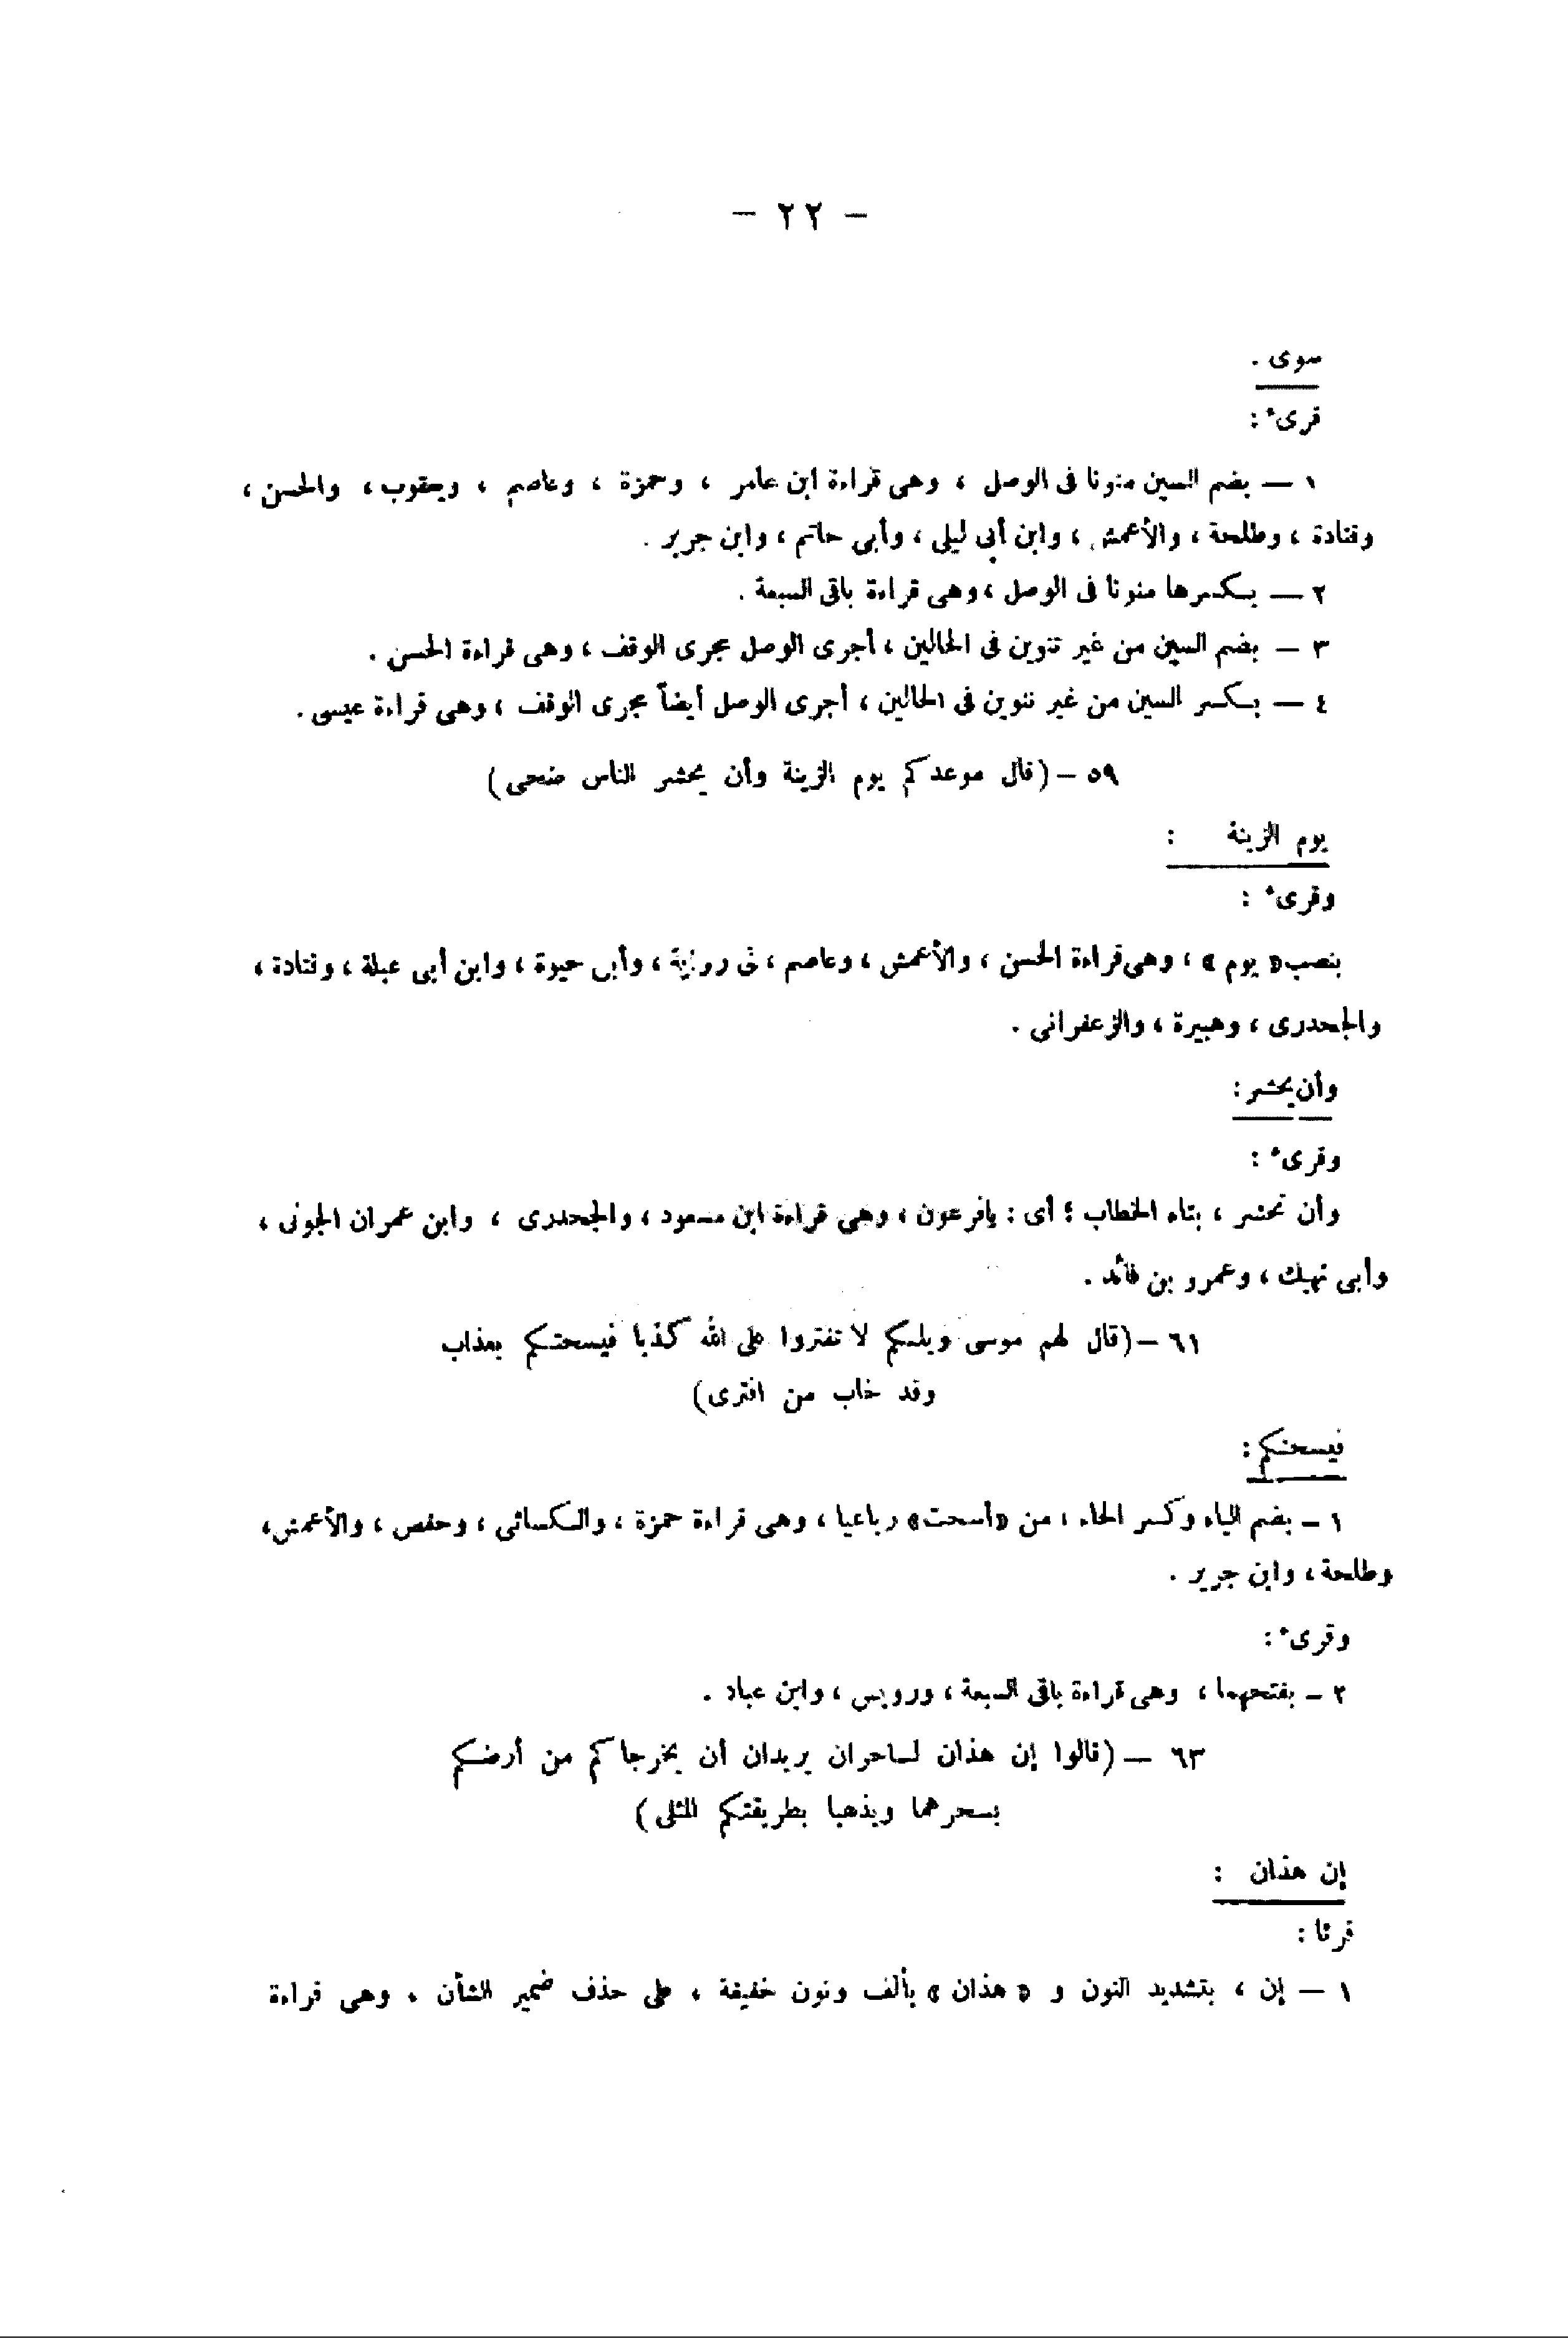 — ٢٢ —
سوى .
قرىء :
١ — بضم السين منونا فى الوصل ، وهى قراءة ابن عامر ، وحمزة ، وعاصم ، ويعقوب ، والحسن ،
وقتادة ، وطلحة ، والأعمش ، وابن أبى ليلى ، وأبى حاتم ، وابن جرير .
٢ — بكسرها منونا فى الوصل ، وهى قراءة باقى السبعة .
٣ — بضم السين من غير تنوين فى الحالين ، أجرى الوصل مجرى الوقف ، وهى قراءة الحسن .
٤ — بكسر السين من غير تنوين فى الحالين ، أجرى الوصل أيضاً مجرى الوقف ، وهى قراءة عيسى .
٥٩ — (قال موعدكم يوم الزينة وأن يحشر الناس ضحى)
يوم الزينة :
وقرىء :
بنصب « يوم » ، وهى قراءة الحسن ، والأعمش ، وعاصم ، فى رواية ، وأبى حيوة ، وابن أبى عبلة ، وقتادة ،
والجحدرى ، وهبيرة ، والزعفرانى .
وأن يحشر :
وقرىء :
وأن تحشر ، بتاء الخطاب ؛ أى : يافرعون ، وهى قراءة ابن مسعود ، والجحدرى ، وابن عمران الجونى ،
وأبى نهيك ، وعمرو بن فائد .
٦١ — (قال لهم موسى ويلكم لا تفتروا على الله كذبا فيسحتكم بعذاب
وقد خاب من افترى)
فيسحتكم :
١ — بضم الياء وكسر الحاء ، من «أسحت» رباعيا ، وهى قراءة حمزة ، والكسائى ، وحفص ، والأعمش ،
وطلحة ، وابن جرير .
وقرىء :
٢ — بفتحهما ، وهى قراءة باقى السبعة ، ورويس ، وابن عباد .
٦٣ — (قالوا إن هذان لساحران يريدان أن يخرجاكم من أرضكم
بسحرهما ويذهبا بطريقتكم المثلى)
إن هذان :
قرئا :
١ — إن ، بتشديد النون و « هذان » بألف ونون خفيفة ، على حذف ضمير الشأن ، وهى قراءة